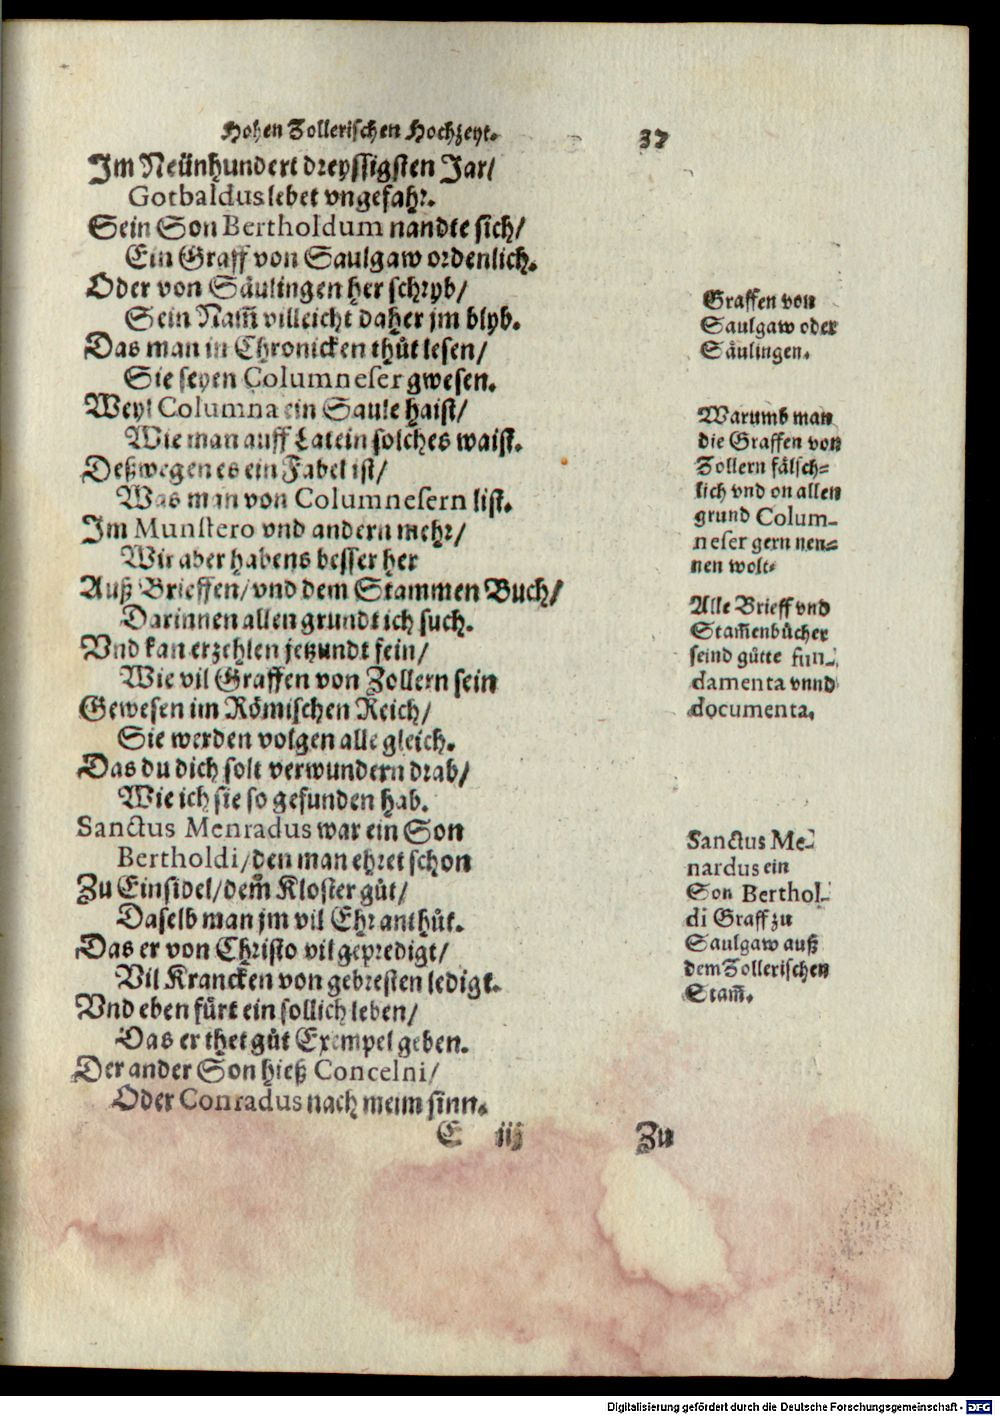 Hohen Zollerischen Hochzeyt. 37
Im Neünhundert dreyssigsten Jar/
Gotbaldus lebet vngefahr.
Sein Son Bertholdum nandte sich/
Ein Graff von Saulgaw ordenlich.
Oder von Säulingen her schryb/
Sein Nam̃ villeicht daher jm blyb.
Das man in Chronicken thůt lesen/
Sie seyen Columneser gwesen.
Weyl Columna ein Saule haist/
Wie man auff Latein solches waist.
Deßwegen es ein Fabel ist/
Was man von Columnesern list.
Im Munstero vnd andern mehr/
Wir aber habens besser her
Auß Brieffen/ vnd dem Stammen Buch/
Darinnen allen grundt ich such.
Vnd kan erzehlen jetzundt fein/
Wie vil Graffen von Zollern sein
Gewesen im Römischen Reich/
Sie werden volgen alle gleich.
Das du dich solt verwundern drab/
Wie ich sie so gefunden hab.
Sanctus Menradus war ein Son
Bertholdi/ den man ehret schon
Zu Einsidel/ dem Kloster gůt/
Daselb man jm vil Ehr anthůt.
Das er von Christo vil gepredigt/
Vil Krancken von gebresten ledigt.
Vnd eben fürt ein sollich leben/
Das er thet gůt Exempel geben.
Der ander Son hieß Concelni/
Oder Conradus nach meim sinn.
E iij Zu
Graffen von
Saulgaw oder
Säulingen.
Warumb man
die Graffen von
Zollern fälsch-
lich vnd on allen
grund Colum-
neser gern nen-
nen wolt.
Alle Brieff vnd
Stam̃enbücher
seind gütte fun-
damenta vnnd
documenta.
Sanctus Me-
nardus ein
Son Berthol-
di Graff zu
Saulgaw auß
dem Zollerischen
Stam̃.
Digitalisierung gefördert durch die Deutsche Forschungsgemeinschaft - DFG